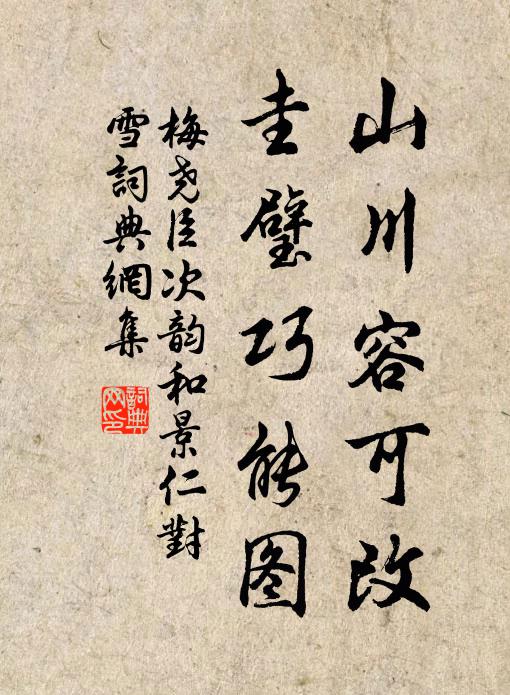 山川容可改
圭璧巧能图
梅尧臣次韵和景仁對
雪詞典網集
詞典网印